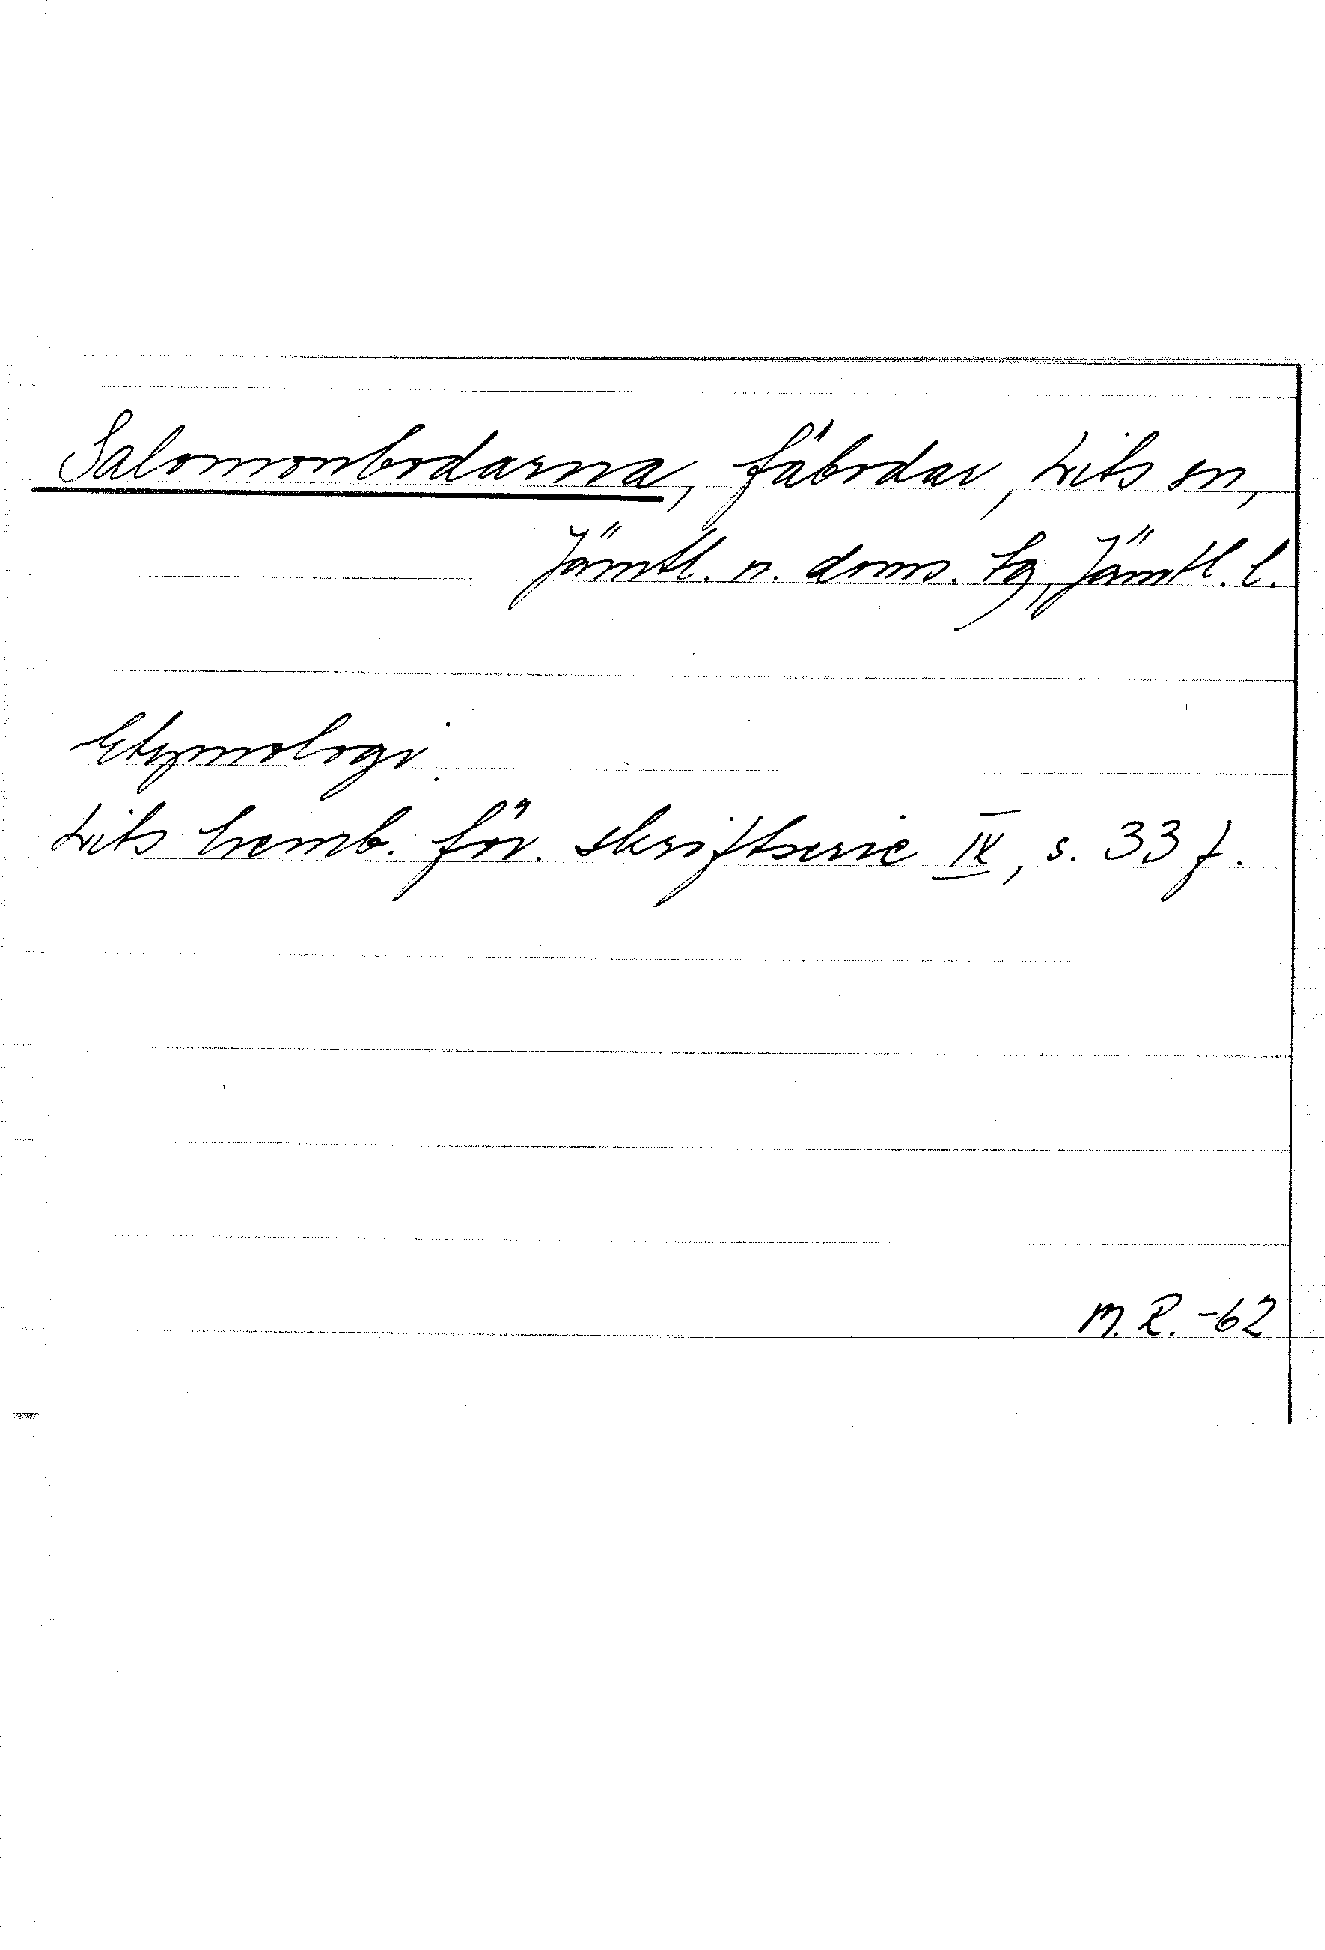 Salomonbodarna, fäbodar, Lits sn,
Jämtl. n. doms. tg, Jämtl. l.
Etymologi:
Lits hemb. för. skriftserie IX, s. 33 f.
M. R. -62